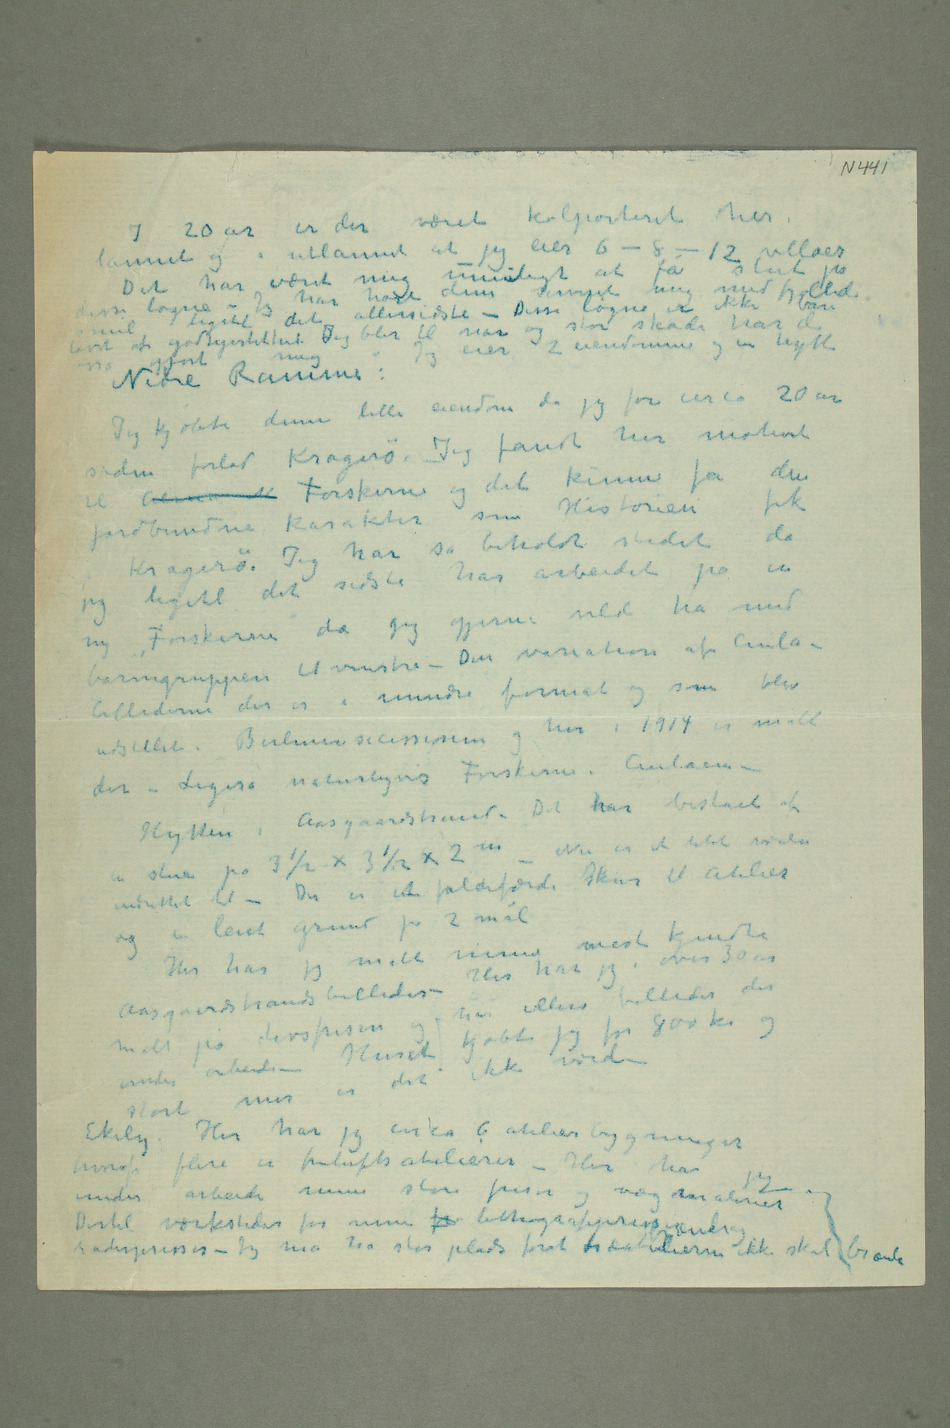 N 441
I 20 år er der været kolporteret her i
lannet og i utlannet at jeg eier 6 – 8 – 12 villaer
Det har været mig umuligt at få slut på
disse løgne – Jeg har hørt dem servert mig med
smil ligetil det allersidste – Disse løgne er ikke bare
Jeg blir til nar og stor skade har de
også gjort mig – Jeg eier 2 eiendomme og en hytte
Nedre Ramme:
Jeg kjøbte denne lille eiendom da jeg for circa 20 år
siden forlod Kragerø. Jeg fandt her motivet
til Forskerne og det kunne få den
jordbundne karakter som Historien fik
i Kragerø. Jeg har så beholdt stedet da
jeg ligetil det sidste har arbeidet på en
ny „Forskerne da jeg gjerne vild ha med
barnegruppen til venstre – Den variation af Aula-
billederne der er i mindre format og som blev
udstillet i Berlinersecessionen og her i 1914 er malt
der – Ligeså naturligvis Forskerne i Aulaen –
Hytten i Aasgaardstrand – Det har bestaaet af
en stue på 3 1/2 x 3 1/2 x 2 m – Nu er et lidet værelse
indrettet til – Der er et faldefærdi skur til atelier
og en leiet grund på 2 mål
Her har jeg malt mine mest kjendte
Aasgaardstrandsbilleder – Her har jeg i over 30 år
malt på livsfrisen og har ellers billeder der
under arbeide – Huset kjøbte jeg for 800 kr og
stort mer er det ikke værd –
Ekely. Her har jeg cirka 6 atelierbygninger
hvoraf flere er friluftsatelierer – Her har jeg
under arbeide mine store friser og vægmalerier og
Dertil værksteder for mine lithografipresser og
raderpresser – Jeg må ha stor plads forat træatelierne ikke skal brænde